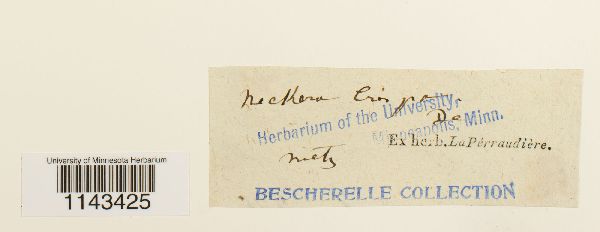 Neckera Crispa
De
Herbarium of the University,
Minneapolis, Minn.
Ex herb. La Pérraudière.
metz
BESCHERELLE COLLECTION
University of Minnesota Herbarium
1143425